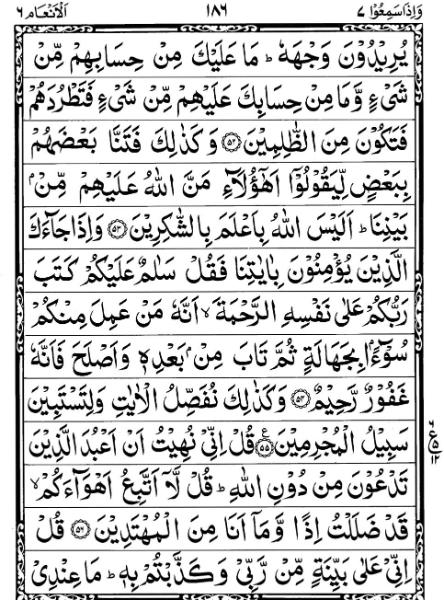 وَاِذَا سَمِعُوْا ٧ ١٨٦ اَلْاَنْعَام ٦
يُرِيْدُوْنَ وَجْهَهٗ ؕ مَا عَلَيْكَ مِنْ حِسَابِهِمْ مِّنْ
شَىْءٍ وَّمَا مِنْ حِسَابِكَ عَلَيْهِمْ مِّنْ شَىْءٍ فَتَطْرُدَهُمْ
فَتَكُوْنَ مِنَ الظّٰلِمِيْنَ ۝٥٢ وَكَذٰلِكَ فَتَنَّا بَعْضَهُمْ
بِبَعْضٍ لِّيَقُوْلُوْۤا اَهٰۤؤُلَآءِ مَنَّ اللّٰهُ عَلَيْهِمْ مِّنْۢ
بَيْنِنَا ؕ اَلَيْسَ اللّٰهُ بِاَعْلَمَ بِالشّٰكِرِيْنَ ۝٥٣ وَاِذَا جَآءَكَ
الَّذِيْنَ يُؤْمِنُوْنَ بِاٰيٰتِنَا فَقُلْ سَلٰمٌ عَلَيْكُمْ كَتَبَ
رَبُّكُمْ عَلٰى نَفْسِهِ الرَّحْمَةَ ۙ اَنَّهٗ مَنْ عَمِلَ مِنْكُمْ
سُوْٓءًۢا بِجَهَالَةٍ ثُمَّ تَابَ مِنْۢ بَعْدِهٖ وَاَصْلَحَ فَاَنَّهٗ
غَفُوْرٌ رَّحِيْمٌ ۝٥٤ وَكَذٰلِكَ نُفَصِّلُ الْاٰيٰتِ وَلِتَسْتَبِيْنَ
سَبِيْلُ الْمُجْرِمِيْنَ ۝٥٥ قُلْ اِنِّىْ نُهِيْتُ اَنْ اَعْبُدَ الَّذِيْنَ
٦ ع ١٢
تَدْعُوْنَ مِنْ دُوْنِ اللّٰهِ ؕ قُلْ لَّاۤ اَتَّبِعُ اَهْوَآءَكُمْ ۙ
قَدْ ضَلَلْتُ اِذًا وَّمَاۤ اَنَا مِنَ الْمُهْتَدِيْنَ ۝٥٦ قُلْ
اِنِّىْ عَلٰى بَيِّنَةٍ مِّنْ رَّبِّىْ وَكَذَّبْتُمْ بِهٖ ؕ مَا عِنْدِىْ